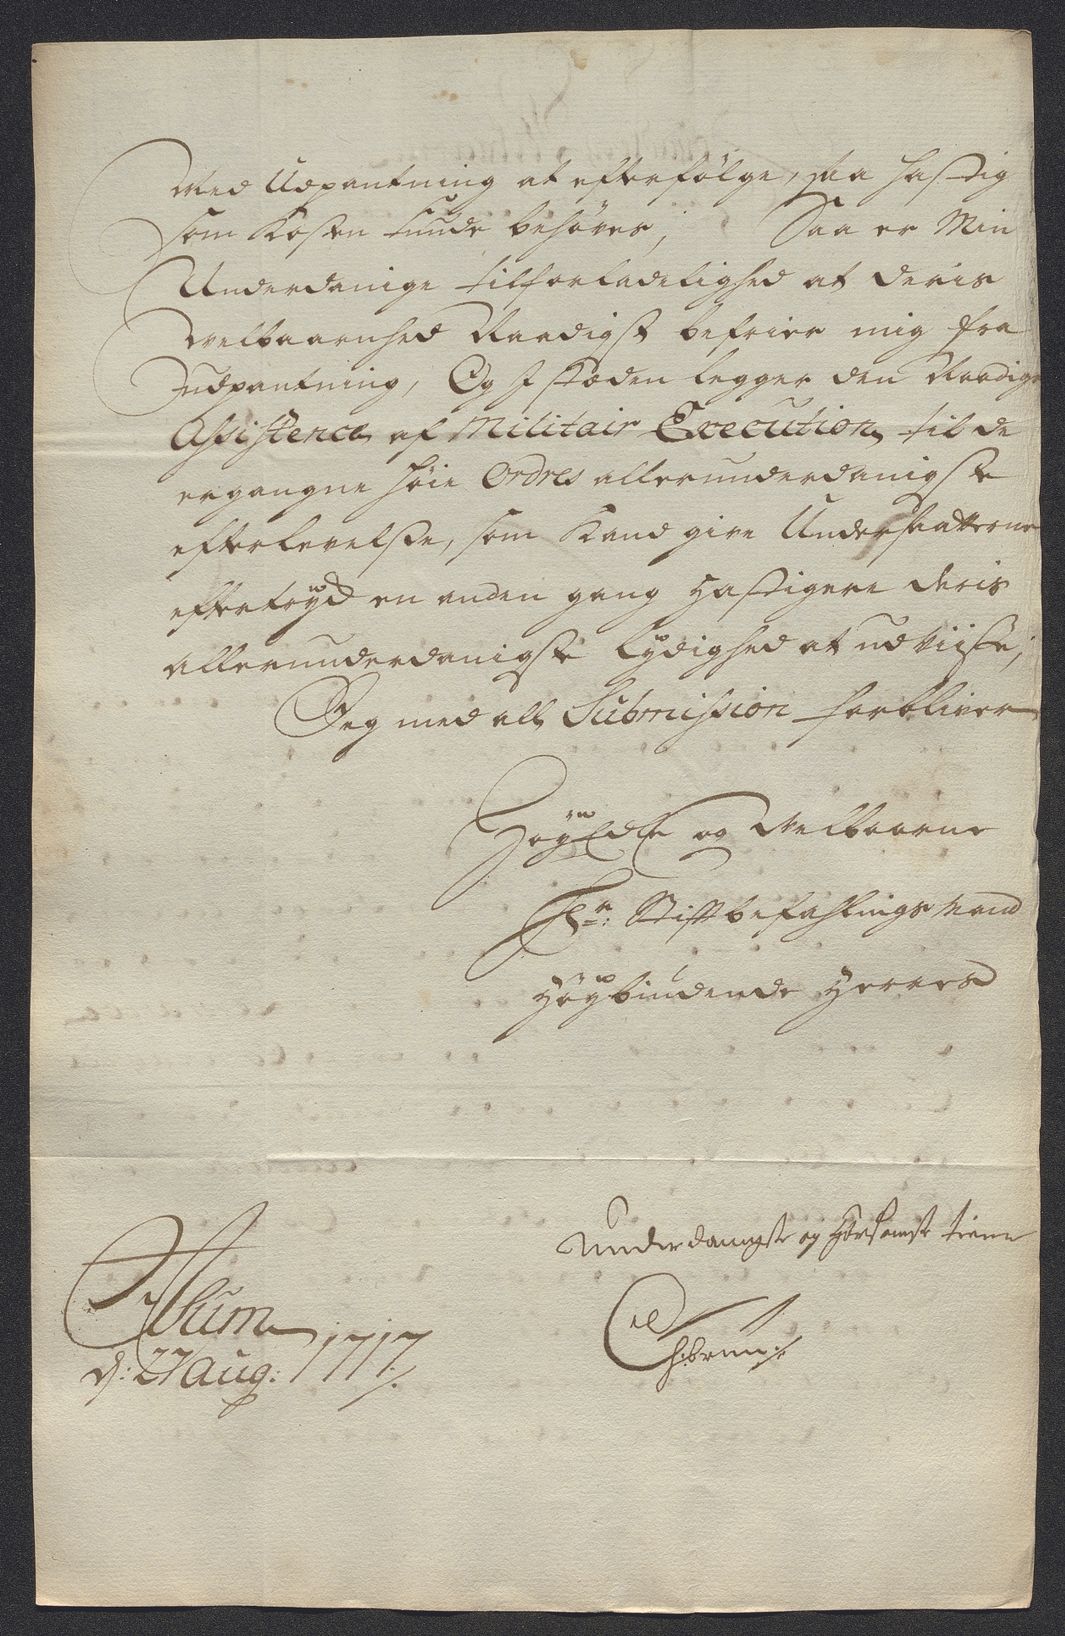 Med Udpantning at efterfølge, saa hastig
som Kosten kunde behøves; Saa er Min
Underdanige tilforladelighed at deris
Velbaarnhed Naadigst befrier mig fra
Udpantning, Og I stæden legger den Naadige
Assistence af Militair Execution til de
ergangne høie Ordres allerunderdanigste
efterlevelse, som Kand give Undersaatterne
efterfryd en anden gang hastigere deris
allerunderdanigste lydighed at udviise;
Jeg med all Submission forbliver
HøyEdle og Velbaarne
Hr: Stiftbefahlings Mand
Høybiudende Herres
Underdanigste og Hørsomste tiener
d: 27 Aug: 1717